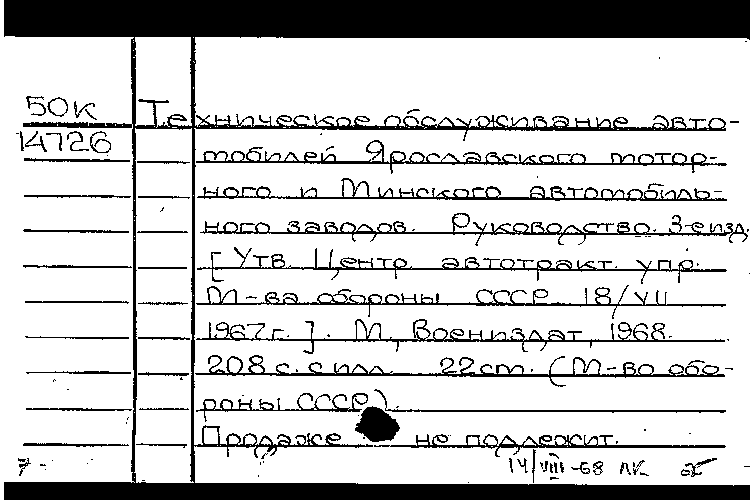 50К Техническое обслуживание авто-
14726 мобилей Ярославского мотор-
ного и Минского автомобиль-
ного заводов. Руководство. 3-е изд.
[Утв. Центр. автотракт. упр.
М-ва обороны СССР 18/VII
1967г.]. М., Воениздат, 1968.
208 с. с илл. 22 см. (М-во обо-
роны СССР).
Продаже не подлежит.
7 - 14/VIII-68 ЛК